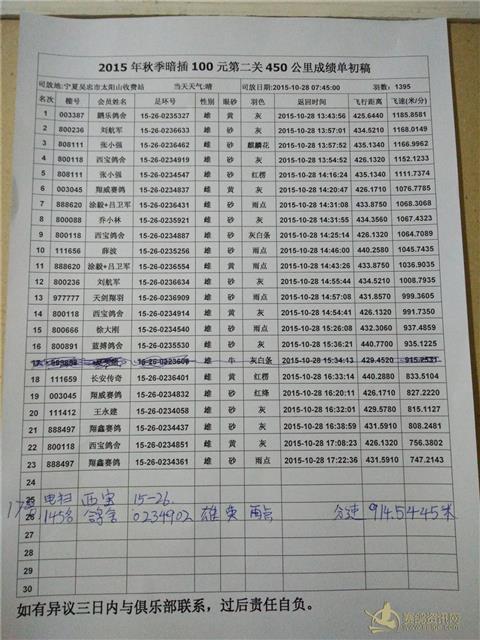 2015 年秋季暗插 100 元第二关 450 公里成绩单初稿
司放地:宁夏吴忠市太阳山收费站 当天天气:晴 司放日期:2015-10-28 07:45:00 羽数: 1395
名次 棚号 会员姓名 足环号 性别 眼砂 羽色 返回时间 飞行距离 飞速(米/分)
1 003387 鹏乐鸽舍 15-26-0235327 雄 黄 灰 2015-10-28 13:43:56 425.6440 1185.8581
2 800236 刘航军 15-26-0236633 雌 砂 灰 2015-10-28 13:57:01 434.5210 1168.0149
3 808111 张小强 15-26-0236462 雌 砂 麒麟花 2015-10-28 13:57:52 435.1340 1166.9962
4 800118 西宝鸽舍 15-26-0234919 雌 砂 灰 2015-10-28 13:54:52 426.1320 1152.1233
5 808111 张小强 15-26-0234547 雌 砂 红楞 2015-10-28 14:16:24 435.1340 1111.7374
6 003045 翔威赛鸽 15-26-0234837 雌 黄 灰 2015-10-28 14:20:47 426.1710 1076.7785
7 888620 涂毅+吕卫军 15-26-0236431 雌 砂 雨点 2015-10-28 14:31:08 433.8750 1068.3068
8 800088 乔小林 15-26-0235921 雌 砂 灰 2015-10-28 14:31:55 434.3560 1067.4323
9 800118 西宝鸽舍 15-26-0234887 雌 砂 灰白条 2015-10-28 14:25:14 426.1320 1064.7089
10 111656 薛波 15-26-0235256 雌 砂 雨点 2015-10-28 14:46:00 440.2580 1045.7435
11 888620 涂毅+吕卫军 15-26-0236554 雌 黄 雨点 2015-10-28 14:43:26 433.8750 1036.9035
12 800236 刘航军 15-26-0236634 雌 砂 灰 2015-10-28 14:55:44 434.5210 1008.7935
13 977777 天剑翔羽 15-26-0234909 雌 砂 雨点 2015-10-28 14:57:08 431.8570 999.3605
14 888497 翔鑫赛鸽 15-26-0234454 雌 砂 灰 2015-10-28 14:54:41 426.1330 991.7350
15 800666 徐大刚 15-26-0235540 雌 砂 雨点 2015-10-28 15:26:08 432.3060 937.4859
16 800891 蓝搏鸽舍 15-26-0235530 雌 砂 灰 2015-10-28 15:36:21 440.7700 935.1225
雌 牛 灰白条 2015-10-28 15:34:13 429.4520
18 111659 长安传奇 15-26-0236401 雌 黄 红楞 2015-10-28 16:33:14 440.2880 833.5104
19 003045 翔威赛鸽 15-26-0234832 雌 砂 红绛 2015-10-28 16:20:11 426.1710 827.2220
20 111412 王永建 15-26-0234058 雌 砂 灰 2015-10-28 16:32:01 429.5780 815.1127
21 888497 翔鑫赛鸽 15-26-0234351 雄 砂 灰 2015-10-28 16:38:59 431.5910 808.2481
22 800118 西宝鸽舍 15-26-0234851 雌 黄 灰 2015-10-28 17:08:23 426.1320 756.3802
23 888497 翔鑫赛鸽 15-26-0234361 雄 砂 雨点 2015-10-28 17:22:36 431.5910 747.2143
24
25 电扫 西宝 15-26.
17名 26 145名 鸽舍 0234902 雄 黄 雨点 分速 914.5445米
27
28
29
30
如有异议三日内与俱乐部联系，过后责任自负。
赛鸽资讯网